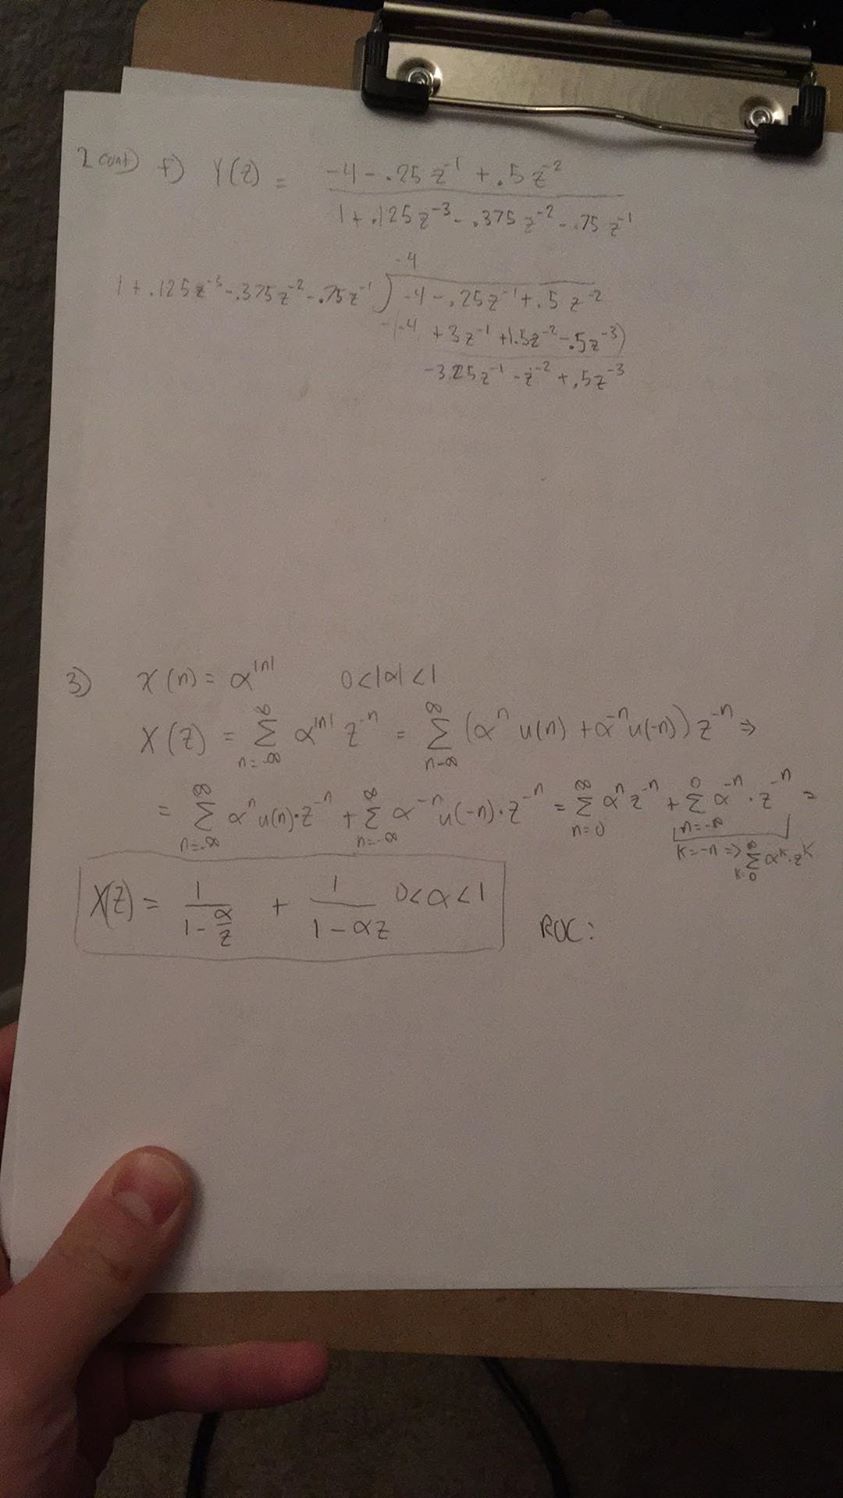 2 cont) f) Y(z) = (-4 - .25z⁻¹ + .5z⁻²) / (1 + .125z⁻³ - .375z⁻² - .75z⁻¹)
-4
1 + .125z⁻³ - .375z⁻² - .75z⁻¹ ) -4 - .25z⁻¹ + .5z⁻²
-(-4 + 3z⁻¹ + 1.5z⁻² - .5z⁻³)
-3.25z⁻¹ - z⁻² + .5z⁻³
3) x(n) = α^|n| 0<|α|<1
X(z) = ∑_{n=-∞}^{∞} α^|n| z⁻ⁿ = ∑_{n-∞}^{∞} (αⁿ u(n) + α⁻ⁿ u(-n)) z⁻ⁿ ⇒
= ∑_{n=-∞}^{∞} αⁿ u(n)·z⁻ⁿ + ∑_{n=-∞}^{∞} α⁻ⁿ u(-n)·z⁻ⁿ = ∑_{n=0}^{∞} αⁿ z⁻ⁿ + ∑_{n=-∞}^{0} α⁻ⁿ·z⁻ⁿ =
k=-n ⇒ ∑_{k=0}^{∞} α^k·z^k
X(z) = 1/(1 - α/z) + 1/(1 - αz) 0<α<1
ROC: